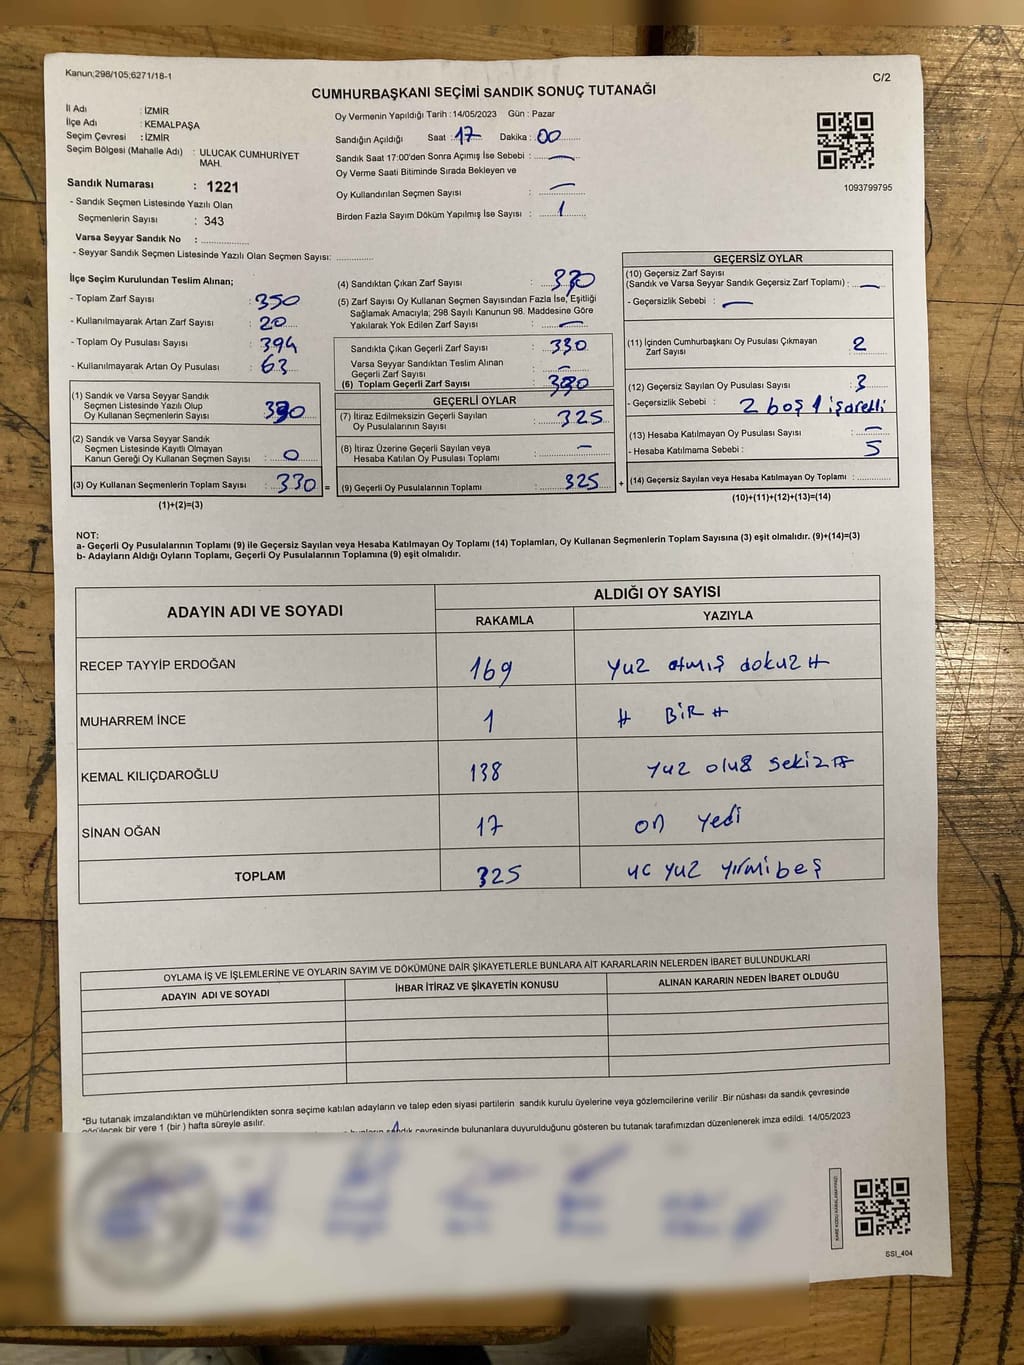 Kanun;298/105;6271/18-1
C/2
CUMHURBAŞKANI SEÇİMİ SANDIK SONUÇ TUTANAĞI
İl Adı : İZMİR
İlçe Adı : KEMALPAŞA
Seçim Çevresi : İZMİR
Seçim Bölgesi (Mahalle Adı) : ULUCAK CUMHURİYET
MAH.
Sandık Numarası : 1221
- Sandık Seçmen Listesinde Yazılı Olan
Seçmenlerin Sayısı : 343
Varsa Seyyar Sandık No : ................
- Seyyar Sandık Seçmen Listesinde Yazılı Olan Seçmen Sayısı: ............
Oy Vermenin Yapıldığı Tarih : 14/05/2023 Gün : Pazar
Sandığın Açıldığı Saat : 17 Dakika : 00
Sandık Saat 17:00'den Sonra Açımış İse Sebebi : —
Oy Verme Saati Bitiminde Sırada Bekleyen ve
Oy Kullandırılan Seçmen Sayısı : —
Birden Fazla Sayım Döküm Yapılmış İse Sayısı : 1
1093799795
İlçe Seçim Kurulundan Teslim Alınan;
- Toplam Zarf Sayısı : 350
- Kullanılmayarak Artan Zarf Sayısı : 20
- Toplam Oy Pusulası Sayısı : 394
- Kullanılmayarak Artan Oy Pusulası : 63
(1) Sandık ve Varsa Seyyar Sandık
Seçmen Listesinde Yazılı Olup
Oy Kullanan Seçmenlerin Sayısı : 330
(2) Sandık ve Varsa Seyyar Sandık
Seçmen Listesinde Kayıtlı Olmayan
Kanun Gereği Oy Kullanan Seçmen Sayısı : 0
(3) Oy Kullanan Seçmenlerin Toplam Sayısı : 330 =
(1)+(2)=(3)
(4) Sandıktan Çıkan Zarf Sayısı : 330
(5) Zarf Sayısı Oy Kullanan Seçmen Sayısından Fazla İse, Eşitliği
Sağlamak Amacıyla; 298 Sayılı Kanunun 98. Maddesine Göre
Yakılarak Yok Edilen Zarf Sayısı : —
Sandıkta Çıkan Geçerli Zarf Sayısı : 330
Varsa Seyyar Sandıktan Teslim Alınan
Geçerli Zarf Sayısı : —
(6) Toplam Geçerli Zarf Sayısı : 330
GEÇERLİ OYLAR
(7) İtiraz Edilmeksizin Geçerli Sayılan
Oy Pusulalarının Sayısı : 325
(8) İtiraz Üzerine Geçerli Sayılan veya
Hesaba Katılan Oy Pusulası Toplamı : —
(9) Geçerli Oy Pusulalarının Toplamı : 325 +
GEÇERSİZ OYLAR
(10) Geçersiz Zarf Sayısı
(Sandık ve Varsa Seyyar Sandık Geçersiz Zarf Toplamı) : —
- Geçersizlik Sebebi : —
(11) İçinden Cumhurbaşkanı Oy Pusulası Çıkmayan
Zarf Sayısı : 2
(12) Geçersiz Sayılan Oy Pusulası Sayısı : 3
- Geçersizlik Sebebi : 2 boş 1 işaretli
(13) Hesaba Katılmayan Oy Pusulası Sayısı : —
- Hesaba Katılmama Sebebi : 5
(14) Geçersiz Sayılan veya Hesaba Katılmayan Oy Toplamı : ............
(10)+(11)+(12)+(13)=(14)
NOT:
a- Geçerli Oy Pusulalarının Toplamı (9) ile Geçersiz Sayılan veya Hesaba Katılmayan Oy Toplamı (14) Toplamları, Oy Kullanan Seçmenlerin Toplam Sayısına (3) eşit olmalıdır. (9)+(14)=(3)
b- Adayların Aldığı Oyların Toplamı, Geçerli Oy Pusulalarının Toplamına (9) eşit olmalıdır.
ADAYIN ADI VE SOYADI ALDIĞI OY SAYISI
RAKAMLA YAZIYLA
RECEP TAYYİP ERDOĞAN 169 yuz atmış dokuz #
MUHARREM İNCE 1 # BİR #
KEMAL KILIÇDAROĞLU 138 yuz oluz sekiz #
SİNAN OĞAN 17 on yedi
TOPLAM 325 uc yuz yırmibeş
OYLAMA İŞ VE İŞLEMLERİNE VE OYLARIN SAYIM VE DÖKÜMÜNE DAİR ŞİKAYETLERLE BUNLARA AİT KARARLARIN NELERDEN İBARET BULUNDUKLARI
ADAYIN ADI VE SOYADI İHBAR İTİRAZ VE ŞİKAYETİN KONUSU ALINAN KARARIN NEDEN İBARET OLDUĞU
*Bu tutanak imzalandıktan ve mühürlendikten sonra seçime katılan adayların ve talep eden siyasi partilerin sandık kurulu üyelerine veya gözlemcilerine verilir .Bir nüshası da sandık çevresinde
görülecek bir yere 1 (bir ) hafta süreyle asılır.
sandık çevresinde bulunanlara duyurulduğunu gösteren bu tutanak tarafımızdan düzenlenerek imza edildi. 14/05/2023
SSI_404